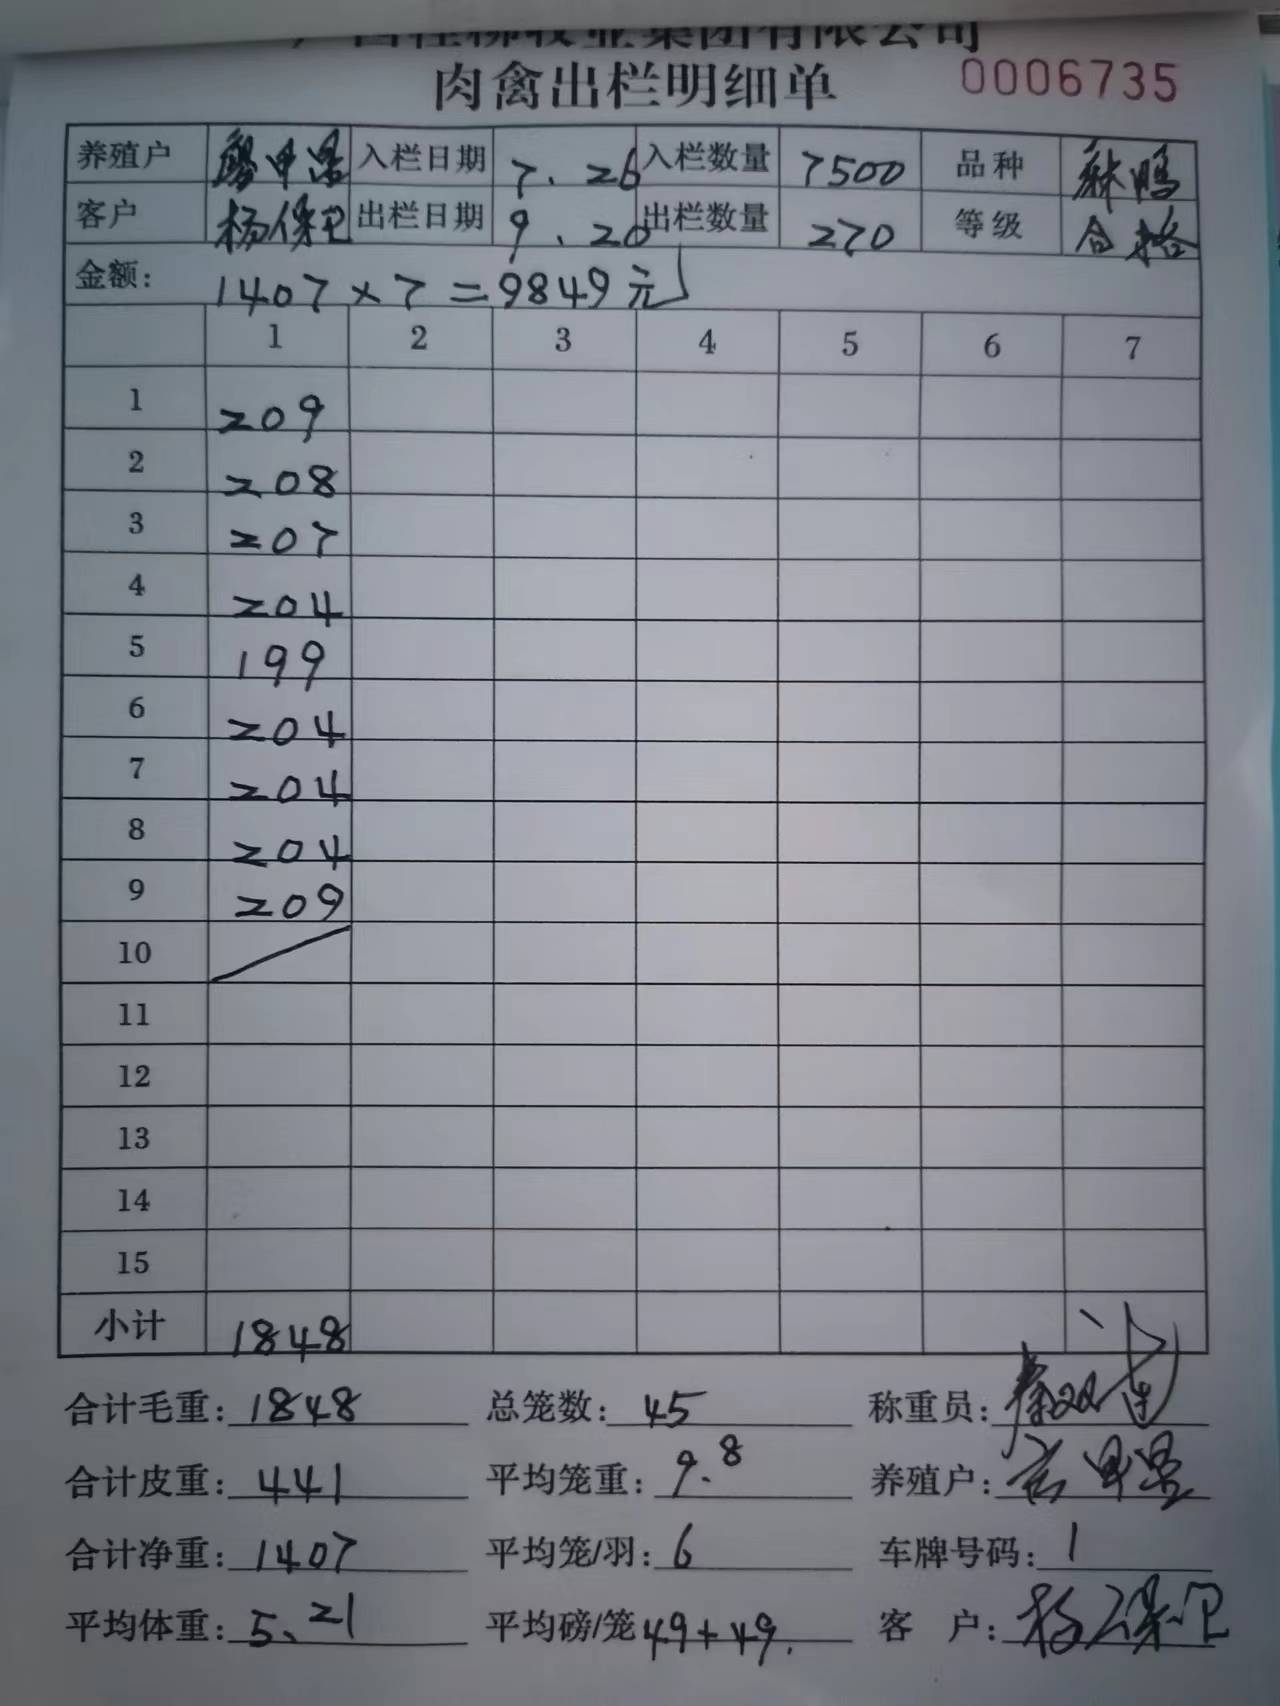 广西桂柳牧业集团有限公司
肉禽出栏明细单 0006735
养殖户 廖甲昌 入栏日期 7.26 入栏数量 7500 品种 麻鸭
客户 杨保卫 出栏日期 9.20 出栏数量 270 等级 合格
金额: 1407×7=9849元
1 2 3 4 5 6 7
1 209
2 208
3 207
4 204
5 199
6 204
7 204
8 204
9 209
10
11
12
13
14
15
小计 1848
合计毛重: 1848 总笼数: 45 称重员:
合计皮重: 441 平均笼重: 9.8 养殖户:
合计净重: 1407 平均笼/羽: 6 车牌号码: 1
平均体重: 5.21 平均磅/笼 49+49. 客 户: